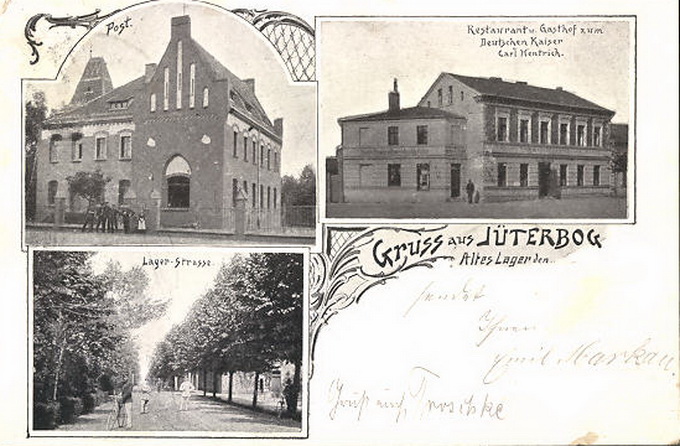 Post.
Restaurant u. Gasthof zum
Deutschen Kaiser
Carl Hentrich.
Lager-Strasse.
Gruss aus JÜTERBOG
Altes Lager den
sendet
Ihnen
Emil Markau.